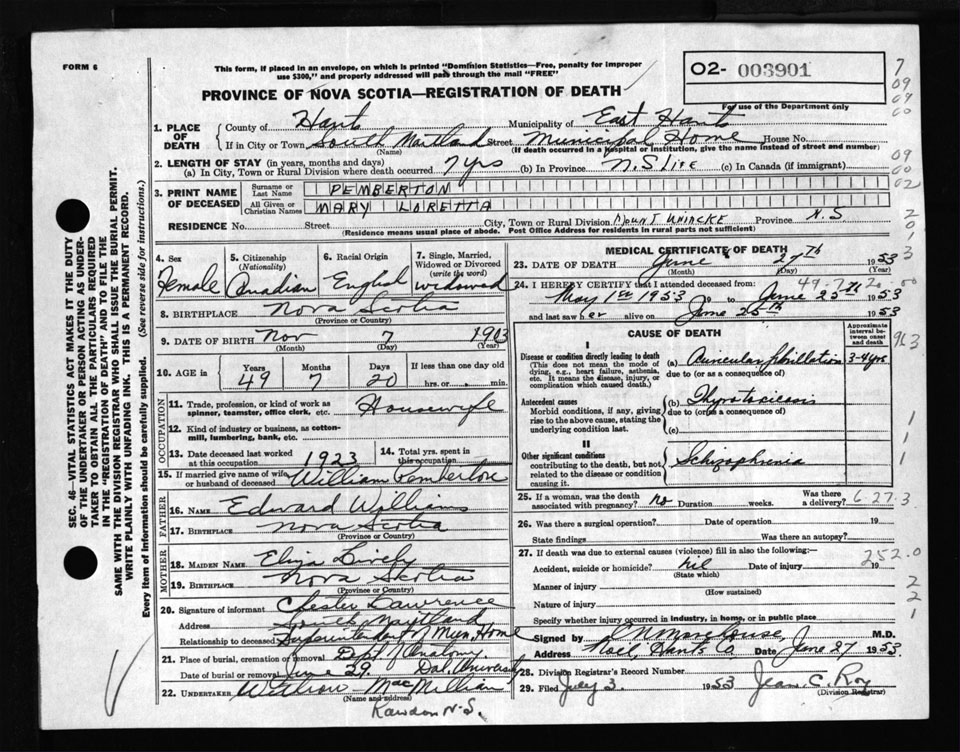 FORM 6
This form, if placed in an envelope, on which is printed "Dominion Statistics—Free, penalty for improper
use $300," and properly addressed will pass through the mail "FREE"
PROVINCE OF NOVA SCOTIA—REGISTRATION OF DEATH
O2- 003901
For use of the Department only
1. PLACE OF DEATH
County of Hants Municipality of East Hants
If in City or Town South Maitland Street Municipal Home House No.
(Name) (If death occurred in a hospital or institution, give the name instead of street and number)
2. LENGTH OF STAY (in years, months and days)
(a) In City, Town or Rural Division where death occurred 7 yrs (b) In Province N.S Life (c) In Canada (if immigrant)
3. PRINT NAME OF DECEASED
Surname or Last Name PEMBERTON
All Given or Christian Names MARY LORETTA
RESIDENCE No. Street City, Town or Rural Division MOUNT UNIACKE Province N.S.
(Residence means usual place of abode. Post Office Address for residents in rural parts not sufficient)
4. Sex Female
5. Citizenship (Nationality) Canadian
6. Racial Origin English
7. Single, Married, Widowed or Divorced (write the word) widowed
8. BIRTHPLACE Nova Scotia
(Province or Country)
9. DATE OF BIRTH Nov 7 1903
(Month) (Day) (Year)
10. AGE in Years Months Days If less than one day old
49 7 20 hrs. or min.
OCCUPATION
11. Trade, profession, or kind of work as spinner, teamster, office clerk, etc. Housewife
12. Kind of industry or business, as cotton-mill, lumbering, bank, etc.
13. Date deceased last worked at this occupation 1923
14. Total yrs. spent in this occupation
15. If married give name of wife or husband of deceased William Pemberton
FATHER
16. Name Edward Williams
17. Birthplace Nova Scotia
(Province or Country)
MOTHER
18. MAIDEN NAME Eliza Lively
19. Birthplace Nova Scotia
(Province or Country)
20. Signature of informant Chester Lawrence
Address South Maitland
Relationship to deceased Superintendant of Mun. Home
21. Place of burial, cremation or removal Dept. of Anatomy
Date of burial or removal June 29. Dal. University
22. UNDERTAKER MacMillian
(Name and address)
Rawdon N.S.
MEDICAL CERTIFICATE OF DEATH
23. DATE OF DEATH June 27th 1953
(Month) (Day) (Year)
24. I HEREBY CERTIFY that I attended deceased from:
May 1st 1953 19 to June 25th 1953
and last saw her alive on June 25th 1953
CAUSE OF DEATH
Approximate interval between onset and death
I
Disease or condition directly leading to death
(This does not mean the mode of dying, e.g., heart failure, asthenia, etc. It means the disease, injury, or complication which caused death.)
(a) Auricular fibrillation 3-4 yrs
due to (or as a consequence of)
Antecedent causes
Morbid conditions, if any, giving rise to the above cause, stating the underlying condition last.
(b) Thyrotoxicosis
due to (or as a consequence of)
(c)
II
Other significant conditions
contributing to the death, but not related to the disease or condition causing it.
Schizophrenia
25. If a woman, was the death associated with pregnancy? no Duration weeks. Was there a delivery?
6-27.3
26. Was there a surgical operation? Date of operation 19
State findings Was there an autopsy?
27. If death was due to external causes (violence) fill in also the following:
Accident, suicide or homicide? nil Date of injury 19
(State which)
252.0
Manner of injury
(How sustained)
Nature of injury
Specify whether injury occurred in industry, in home, or in public place
Signed by Morehouse, M.D.
Address Noel, Hants Co Date June 27 1953
28. Division Registrar's Record Number
29. Filed July 3. 1953 Jean C. Roy
(Division Registrar)
SEC. 46—VITAL STATISTICS ACT MAKES IT THE DUTY
OF THE UNDERTAKER OR PERSON ACTING AS UNDER-
TAKER TO OBTAIN ALL THE PARTICULARS REQUIRED
IN THE "REGISTRATION OF DEATH" AND TO FILE THE
SAME WITH THE DIVISION REGISTRAR WHO SHALL ISSUE THE BURIAL PERMIT.
WRITE PLAINLY WITH UNFADING INK. THIS IS A PERMANENT RECORD.
Every item of information should be carefully supplied. (See reverse side for instructions.)